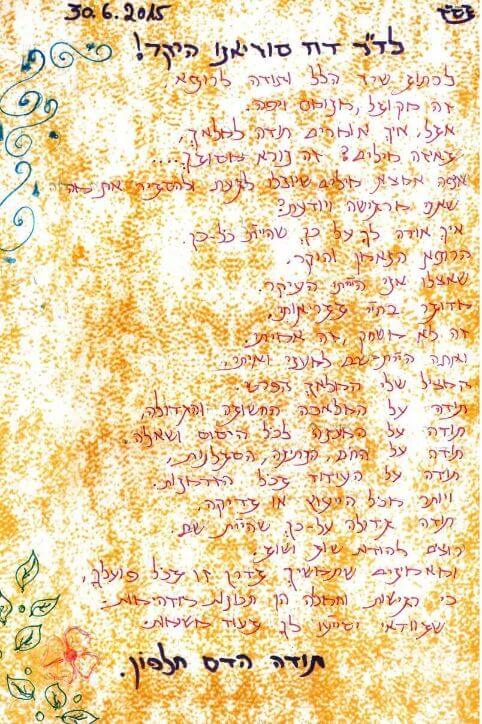 30.6.2015 בס"ד
לד"ר דוד סוריאנו היקר!
לכתוב שיר הלל ותודה לרופא,
זה מקובל, מנומס ויפה.
אבל, איך אומרים תודה למלאך,
באיזה מילים? זה נורא מסובך....
איפה אמצא מילים שיוכלו לגעת ולהסביר את מה
שאני מרגישה ויודעת?
איך אודה לך על כך שהיית כל-כך.
הרופא הנאמן והיקר.
שאצלו אני הייתי העיקר.
מדובר בחיי בבריאותי,
זה לא משחק, זה אמיתי.
ואתה היית שם למעני ואיתי.
המציל שלי המלאך הפרטי.
תודה על המלאכה החשובה והגדולה,
תודה על המענה לכל היסוס ושאלה.
תודה על החום, הנתינה, הסבלנות,
תודה על העידוד בכל הזדמנות.
ויותר מכל הייעוץ או בדיקה,
תודה גדולה על-כך שהיית שם.
רוצים להודות שוב ושוב.
ומאמינים שתמשיך בדרך זו בכל פועלך,
כי רגישות וחמלה הן תכונות מדהימות.
שבוודאי יסייעו לך בעוד משימות.
תודה הדס חלפון.